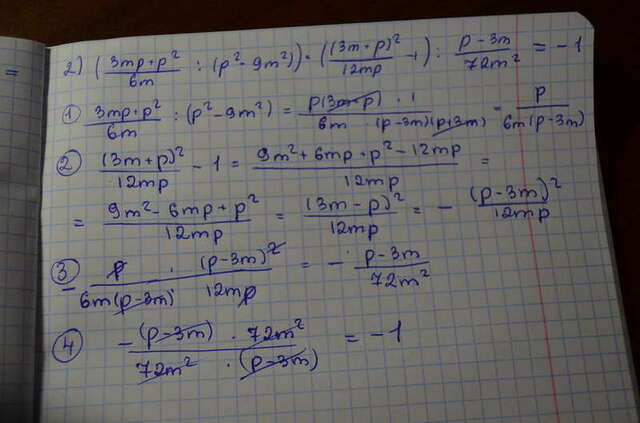 2) (\frac{3mp+p^2}{6m} : (p^2-9m^2)) · (\frac{(3m+p)^2}{12mp} - 1) : \frac{p-3m}{72m^2} = -1
① \frac{3mp+p^2}{6m} : (p^2-9m^2) = \frac{p(3m+p) · 1}{6m (p-3m)(p+3m)} = \frac{p}{6m(p-3m)}
② \frac{(3m+p)^2}{12mp} - 1 = \frac{9m^2+6mp+p^2-12mp}{12mp} =
= \frac{9m^2-6mp+p^2}{12mp} = \frac{(3m-p)^2}{12mp} = - \frac{(p-3m)^2}{12mp}
③ - \frac{p · (p-3m)^2}{6m(p-3m) 12mp} = - \frac{p-3m}{72m^2}
④ \frac{-(p-3m) · 72m^2}{72m^2 · (p-3m)} = -1
=